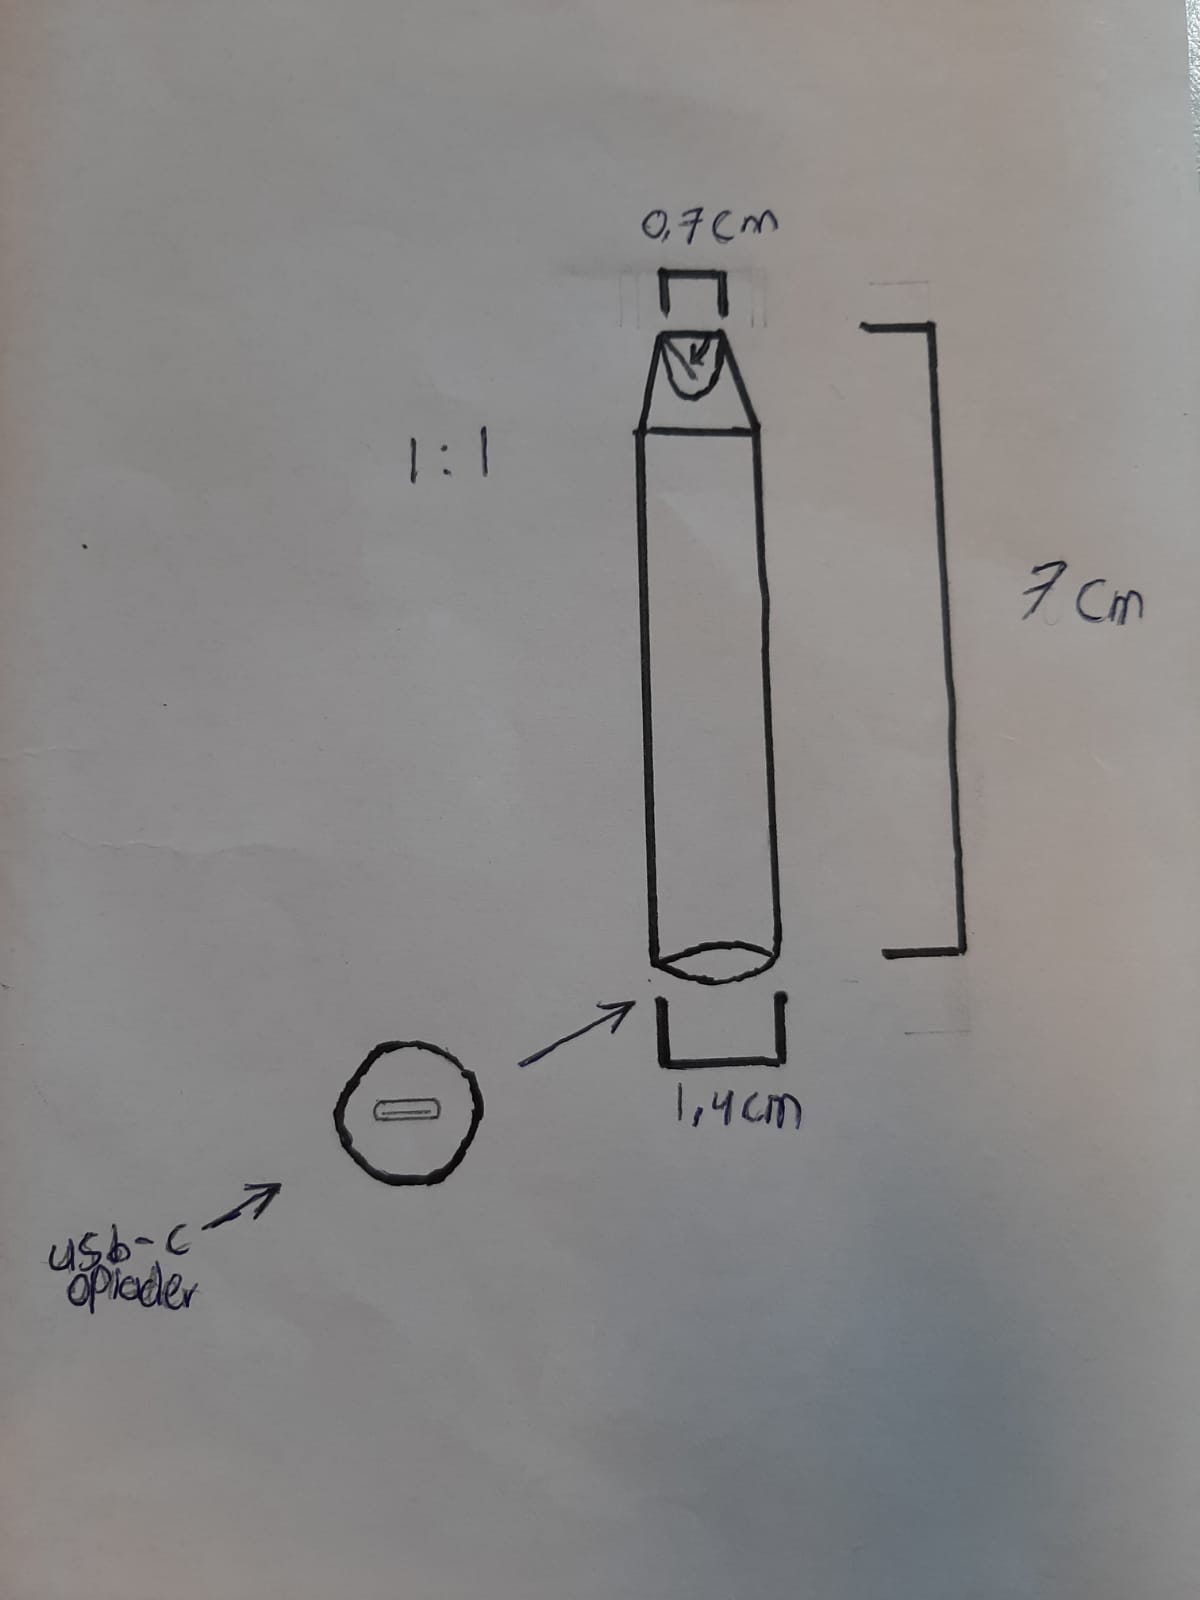 0,7cm
1:1
7 cm
1,4cm
usb-c
oplader